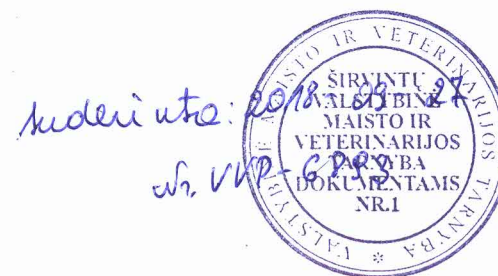 Suderinta: 2018-09-27
Nr. VVP-6899
VALSTYBINĖ MAISTO IR VETERINARIJOS TARNYBA
ŠIRVINTŲ
VALSTYBINĖ
MAISTO IR
VETERINARIJOS
TARNYBA
DOKUMENTAMS
NR.1